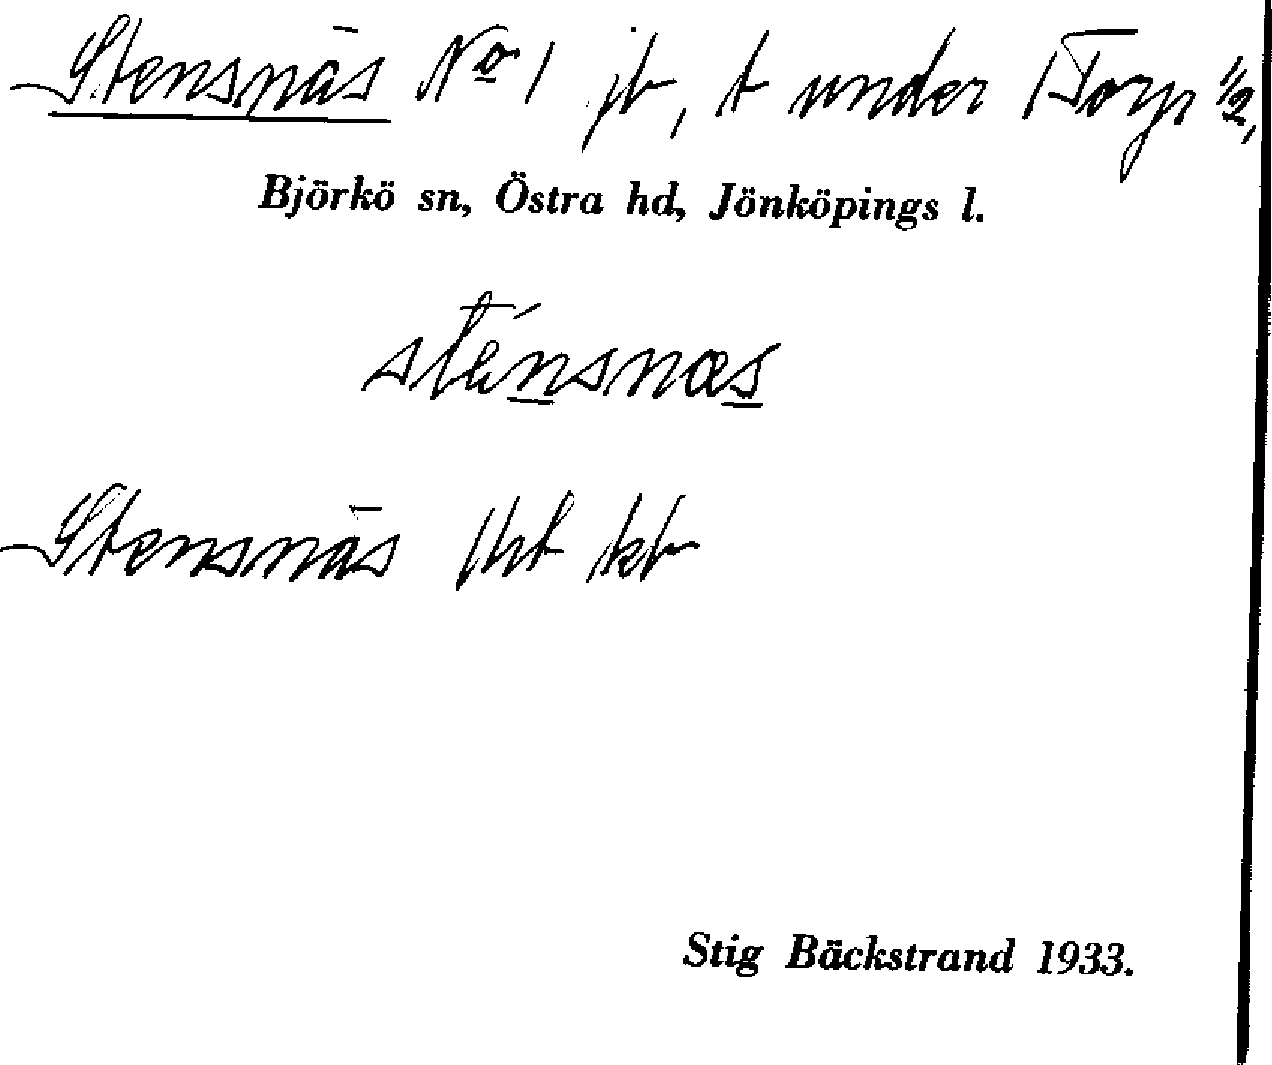 Stensnäs No 1 jb, t under Torp 1/2,
Björkö sn, Östra hd, Jönköpings l.
sténsnæs
Stensnäs Urt kb
Stig Bäckstrand 1933.